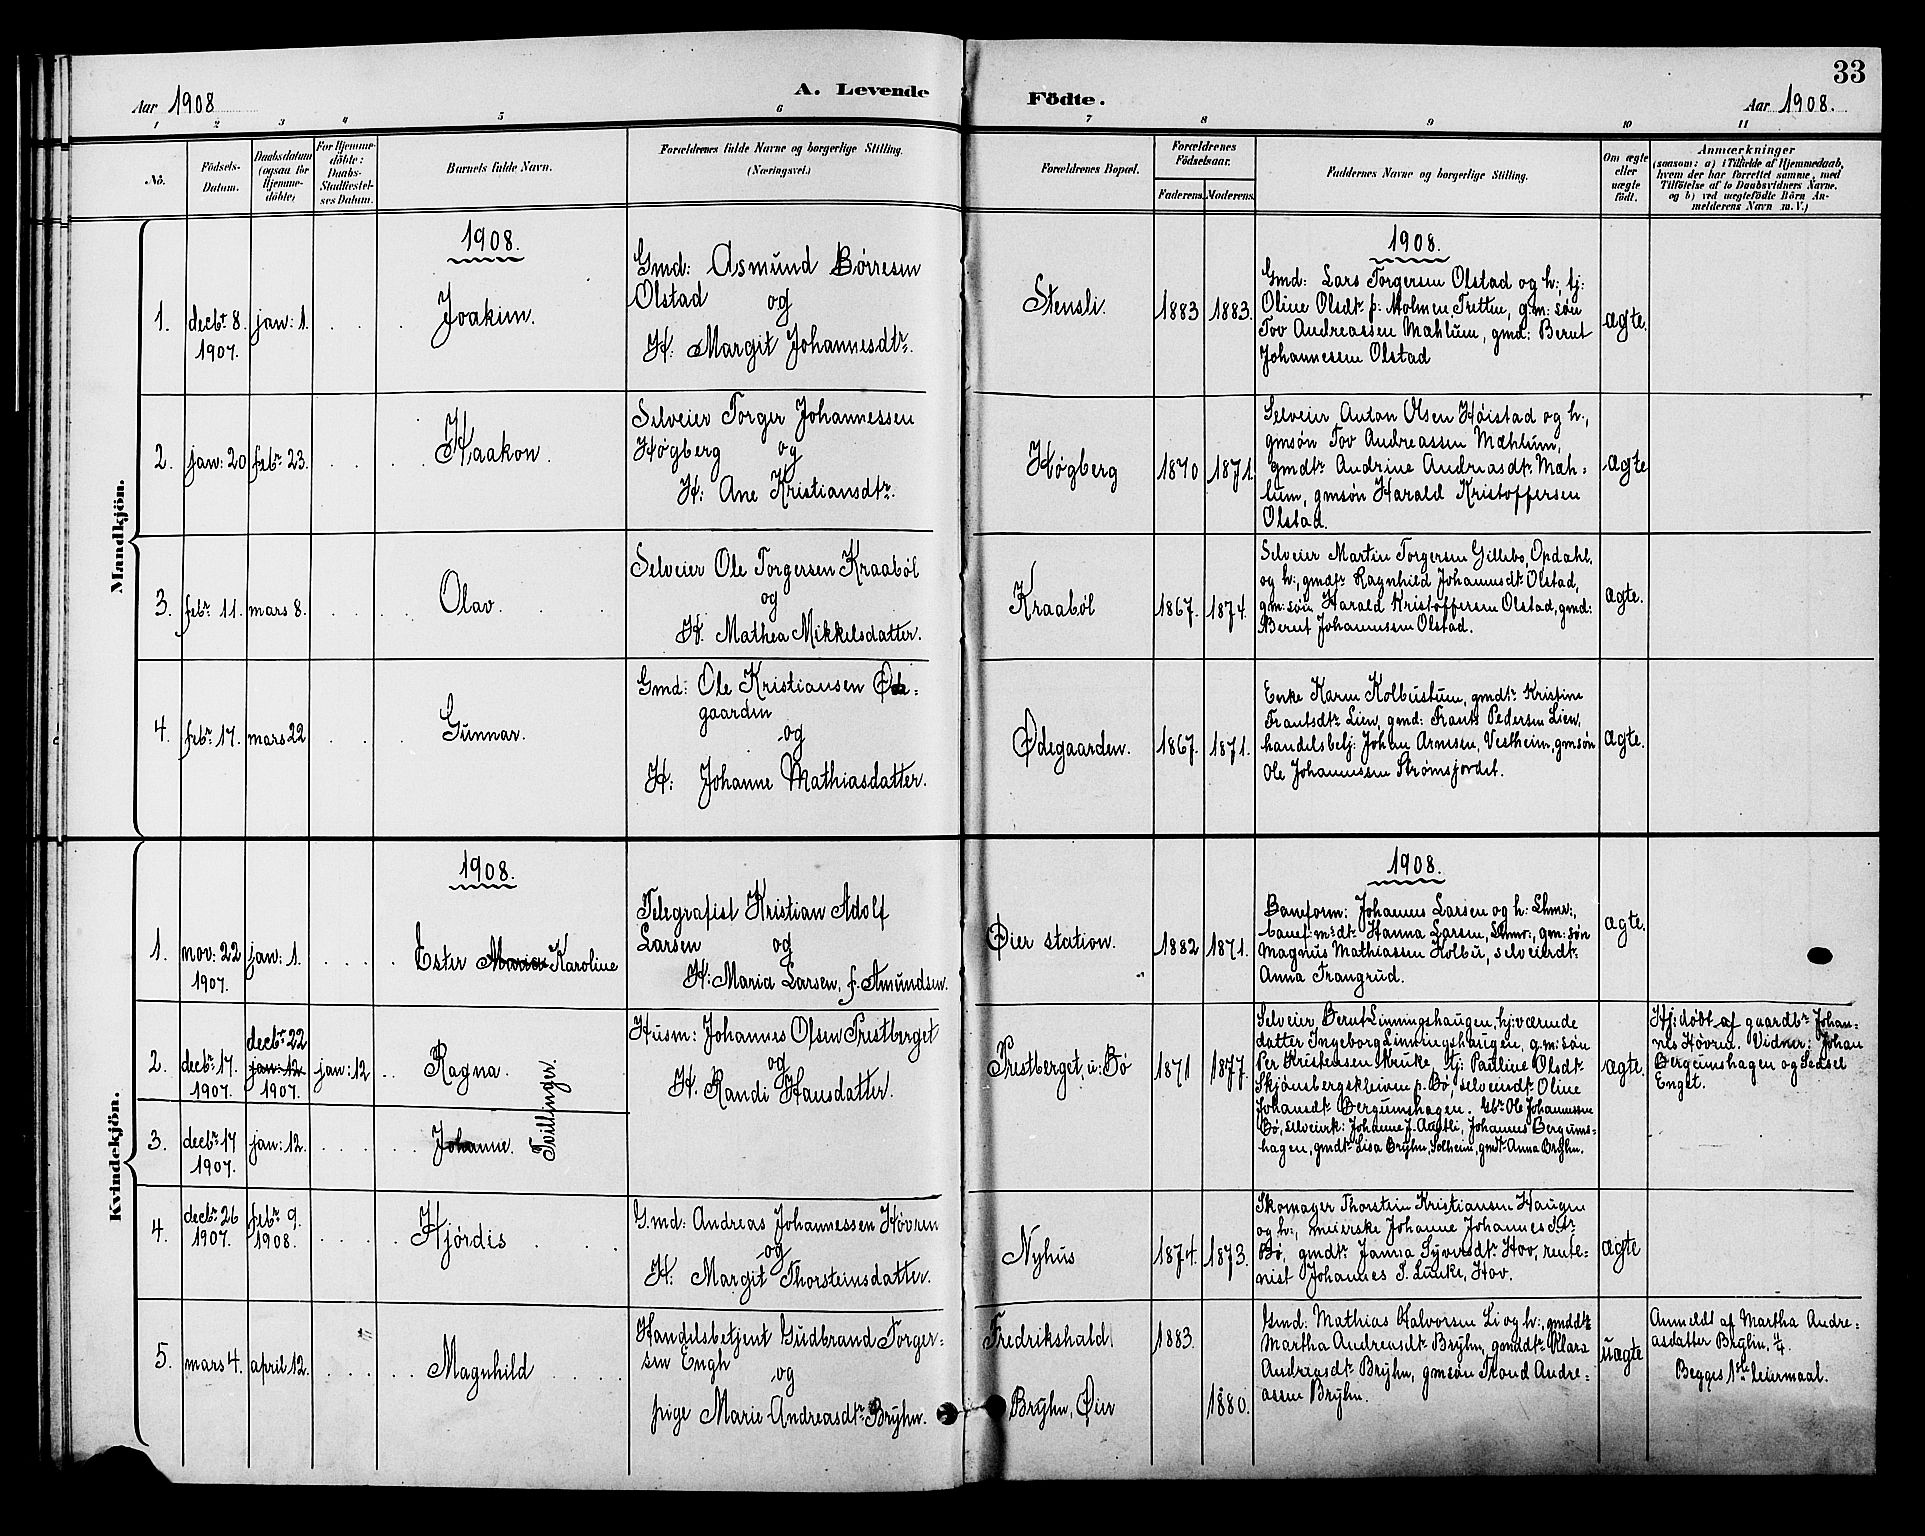 33
A. Levende Födte.
Aar 1908
Aar 1908.
1 2 3 4 5 6 7 8 9 10 11
Nö.
Födsels-
Datum.
Daabsdatum
(ogsaa for
Hjemme-
döbte)
For Hjemme-
döbte:
Daabs-
Stadfæstel-
ses Datum.
Barnets fulde Navn.
Forældrenes fulde Navne og borgerlige Stilling.
(Næringsvei.)
Forældrenes Bopæl.
Forældrenes
Födselsaar.
Faderens. Moderens.
Faddernes Navne og borgerlige Stilling.
Om ægte
eller
uægte
födt.
Anmærkninger
(saasom: a) i Tilfælde af Hjemmedaab,
hvem der har forrettet samme, med
Tilföielse af to Daabsvidners Navne,
og b) ved uægtefödte Börn An-
melderens Navn m. V.)
Mandkjön.
1908.
1908.
1.
decbr 8.
1907.
jan: 1.
Joakim.
Gmd: Asmund Börresen
Olstad og
H: Margit Johannesdtr.
Stensli.
1883 1883.
Gmd: Lars Torgersen Olstad og h:, tj:
Oline Olsdtr p. Molmen, Tretten, g.m: søn
Tov Andreassen Mæhlum, gmd: Bernt
Johannesen Olstad
ægte.
2.
jan: 20 febr 23.
Haakon.
Selveier Torger Johannessen
Høgberg og
H: Ane Kristiansdtr.
Høgberg
1870 1871.
Selveier Anton Olsen Høistad og h:,
gmsøn Tov Andreassen Mæhlum,
gmdtr Andrine Andreasdtr Mæh-
lum, gmsøn Harald Kristoffersen
Olstad.
ægte
3.
febr 11. mars 8.
Olav.
Selveier Ole Torgersen Kraaböl
og
H. Mathea Mikkelsdatter.
Kraaböl
1867. 1874.
Selveier Martin Torgersen Gillebo, Opdahl,
og h:, gmdtr Ragnhild Johannesdtr Olstad,
gm: søn Harald Kristoffersen Olstad, gmd:
Bernt Johannessen Olstad.
ægte.
4.
febr 17. mars 22
Gunnar.
Gmd: Ole Kristiansen Øde-
gaarden
og
H: Johanne Mathiasdatter.
Ødegaarden.
1867. 1871.
Enke Karen Kolbustuen, gmdtr Kristine
Frantsdtr Lien, gmd: Frants Pedersen Lien,
handelsbetj: Johan Arnesen, Vestheim, gmsøn
Ole Johannessen Strømsjordet.
ægte.
Kvindekjön.
1908.
1908.
1.
nov: 22
1907.
jan: 1.
Ester Marie Karoline
Telegrafist Kristian Adolf
Larsen og
H: Maria Larsen, f. Amundsen.
Øier station.
1882 1871.
Baneform: Johannes Larsen og h: Lhmr:,
banef:m:dtr Hanna Larsen, Lhmr:, gm: søn
Magnus Mathiassen Kolbu, selveierdtr
Anna Trangrud.
ægte.
2.
decbr 17.
1907.
decbr 22
jan: 12.
1907.
jan: 12
Ragna.
Tvillinger.
Husm: Johannes Olsen Prestberget
og
H. Randi Hansdatter.
Prestberget, u: Bö
1871 1877.
Selveier Bernt Linningshaugen, hj:værende
datter Ingeborg Linningshaugen, g.m: søn
Per Kristensen Kruke, tj: Pauline Olsdtr
Skjønsbergskleiven p. Bö, selveirdtr Oline
Johansdtr Bergumshagen. Gbr Ole Johannessen
Bö, selveirk: Johanne J. Aastli, Johannes Bergums-
hagen, gmdtr Lisa Brÿhn, Solheim, gmdtr Anna Brÿhn.
ægte.
Hj: døbt af gaardbr Johan-
nes Hövren. Vidner: Johan
Bergumshagen og Sedsel
Enget.
3.
decbr 17
1907.
jan: 12.
Johanne.
4.
decbr 26
1907.
febr 9.
1908.
Hjördis
Gmd: Andreas Johannessen Hövren
og
H. Margit Thorsteinsdatter.
Nyhus
1874. 1873.
Skomager Thorstein Kristiansen Haugen
og h:, meierske Johanne Johannesdtr
Bö, gmdtr Janna Syversdtr Hov, rente-
nist Johannes S. Lunke, Hov.
ægte
5.
mars 4. april 12.
Magnhild
Handelsbetjent Gudbrand Torger-
sen Engh
og
pige Marie Andreasdtr Brÿhn.
Fredrikshald
Brÿhn, Øier
1883.
1880.
Gmd: Mathias Halvorsen Li og h:, gmddtr
Martha Andreasdtr Brÿhn, gmddtr Klara
Andreasdtr Brÿhn, gmsøn Trond Andre-
assen Brÿhn.
uægte
Anmeldt af Martha Andre-
asdatter Brÿhn, 4/4.
Begges 1ste leiermaal.